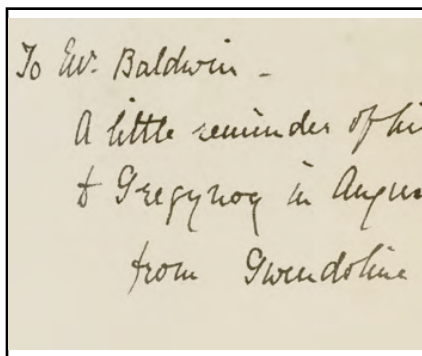 To Mr. Baldwin -
A little reminder of hi
to Gregynog in Augus
from Gwendoline